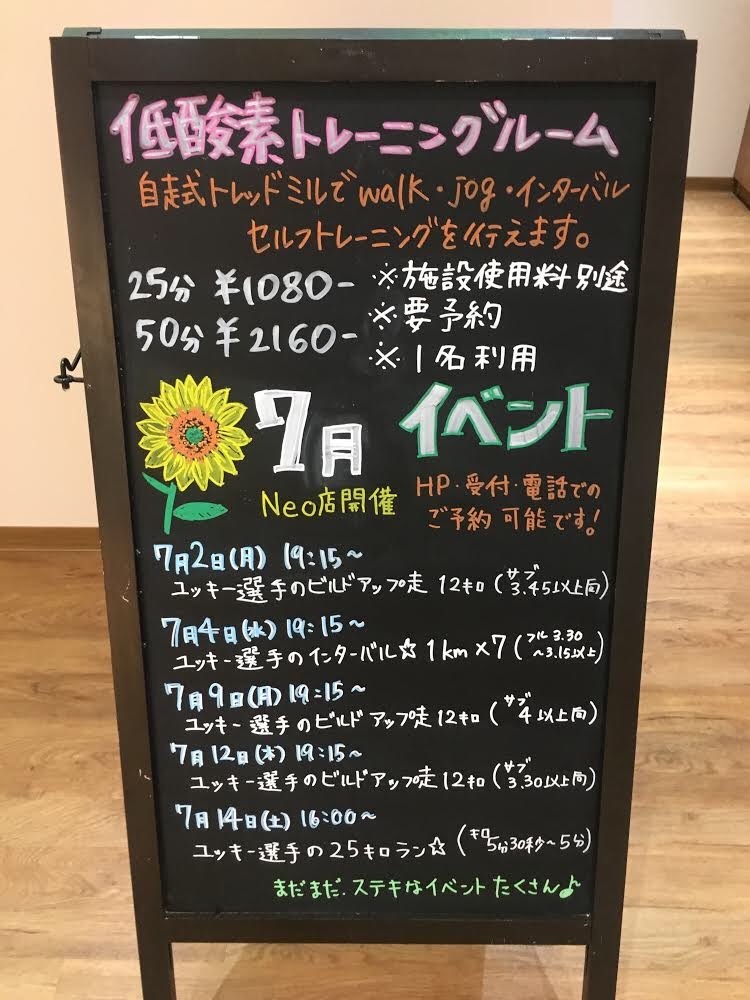 低酸素トレーニングルーム
自走式トレッドミルでwalk・jog・インターバル
セルフトレーニングを行えます。
25分 ¥1080- ※施設使用料別途
50分 ¥2160- ※要予約
※1名利用
7月 イベント
Neo店開催
HP・受付・電話での
ご予約 可能です!
7月2日(月) 19:15~
ユッキー選手のビルドアップ走 12キロ (サブ3.45以上向)
7月4日(水) 19:15~
ユッキー選手のインターバル☆ 1km×7 (フル3.30~3.15以上)
7月9日(月) 19:15~
ユッキー選手のビルドアップ走12キロ (サブ4以上向)
7月12日(木) 19:15~
ユッキー選手のビルドアップ走12キロ (サブ3.30以上向)
7月14日(土) 16:00~
ユッキー選手の25キロラン☆ (キロ5分30秒~5分)
まだまだ、ステキなイベントたくさん♪